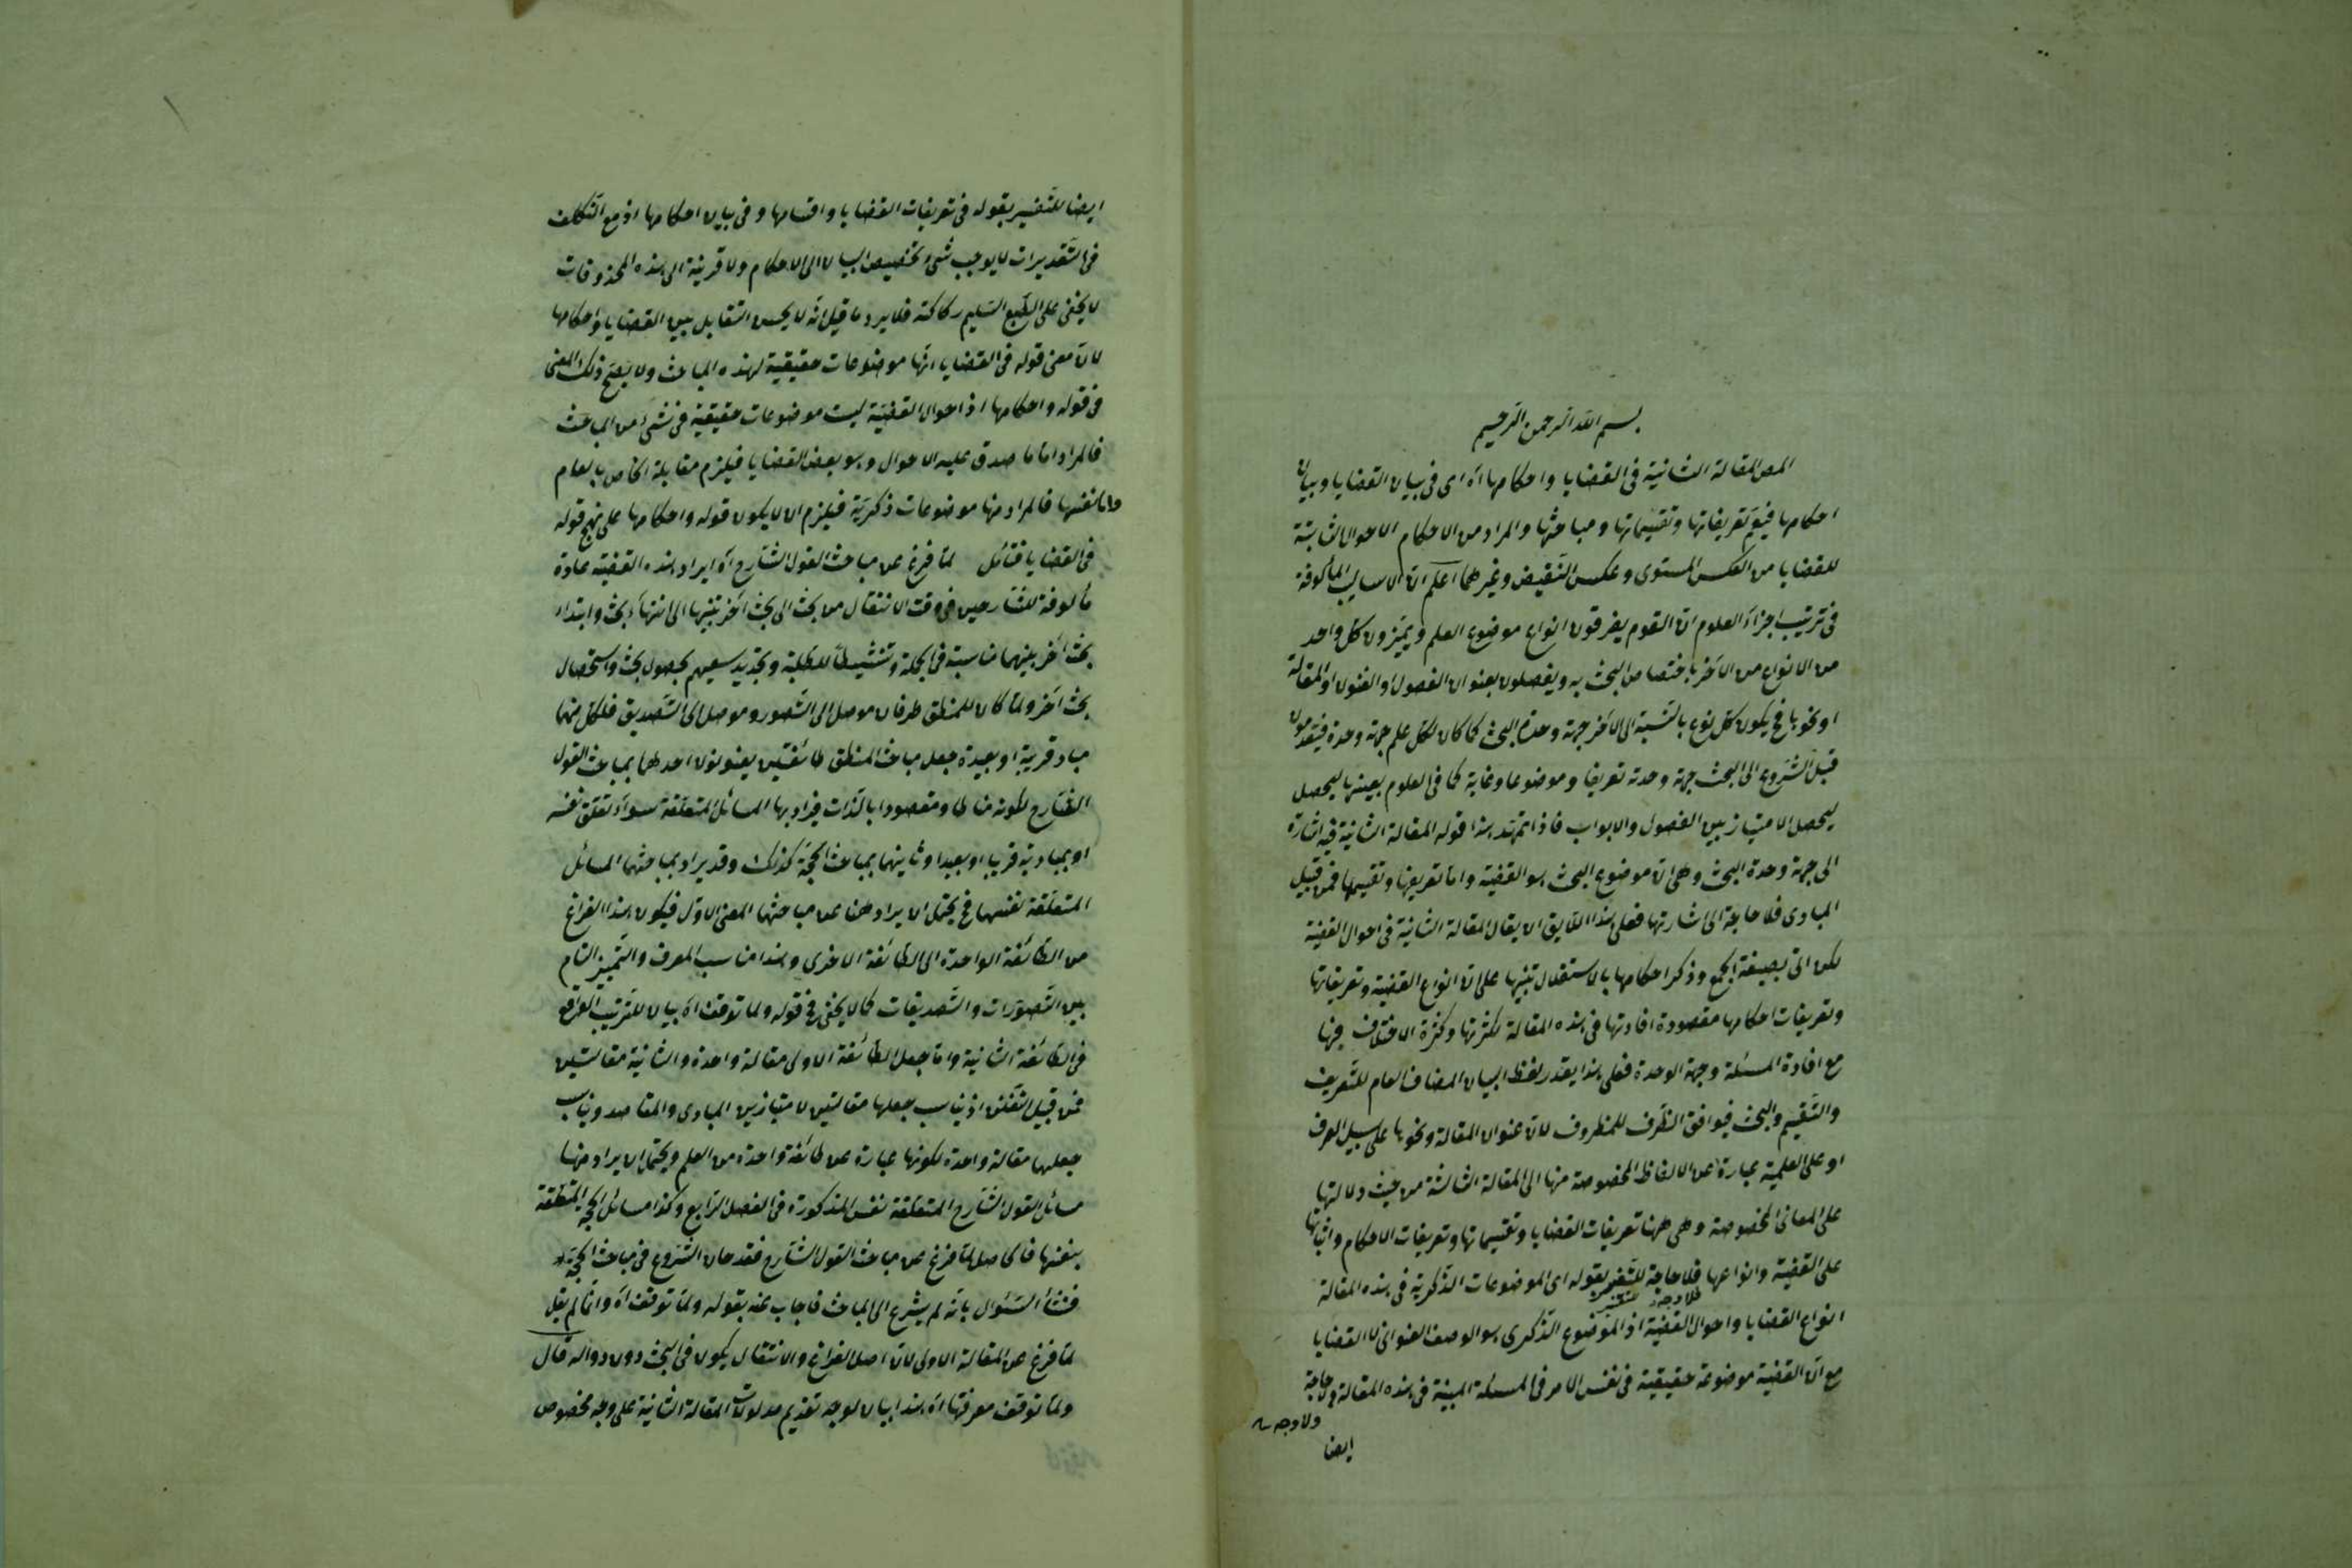 بسم الله الرحمن الرحيم
المص المقالة الثانية فى القضايا واحكامها آه اى فى بيان القضايا وبيان
احكامها فيعم تعريفاتها وتقسيماتها ومباحثها والمراد من الاحكام الاحوال الثابتة
للقضايا من العكس المستوى وعكس النقيض وغيرهما اعلم ان الاساليب المألوفة
فى ترتيب اجزاء العلوم ان القوم يفرقون انواع موضوع العلم ويميزون كل واحد
من الانواع من الآخر باختصاص البحث به ويفصلون بعنوان الفصول او الفنون او المقالة
او نحوها فح يكون كل نوع بالنسبة الى الآخر جهة وحدة البحث كما كان لكل علم جهة وحدة فيقدمون
قبل الشروع الى البحث جهة وحدته تعريفا وموضوعا وغاية كما فى العلوم بعينها ليحصل
ليحصل الامتياز بين الفصول والابواب فاذا تمهد هذا قوله المقالة الثانية فيه اشارة
الى جهة وحدة البحث وهى ان موضوع البحث هو القضية واما تعريفها وتقسيمها فمن قبيل
المبادى فلا حاجة الى اشارتها فعلى هذا اللايق ان يقال المقالة الثانية فى احوال القضية
لكن اتى بصيغة الجمع وذكر احكامها بالاستقلال تنبيها على ان انواع القضية وتعريفاتها
وتعريفات احكامها مقصودة افادتها فى هذه المقالة لكثرتها وكثرة الاختلاف فيها
مع افادة المسئلة وجهة الوحدة فعلى هذا يقدر لفظ البيان المضاف العام للتعريف
والتقسيم والبحث فيوافق الظرف للمظروف لان عنوان المقالة ونحوها على سبيل العرف
او على العلمية عبارة عن الالفاظ المخصوصة منها الى المقالة الثالثة من حيث دلالتها
على المعانى المخصوصة وهى ههنا تعريفات القضايا وتقسيماتها وتعريفات الاحكام واثباتها
على القضية وانواعها فلا حاجة للتفسير بقوله اى الموضوعات الذكرية فى هذه المقالة
فلا وجه
انواع القضايا واحوال القضية اذ الموضوع الذكرى هو الوصف العنوانى لا القضايا
مع ان القضية موضوعة حقيقية فى نفس الامر فى المسئلة المبينة فى هذه المقالة ولا حاجة
ولا وجه
ايضا
ايضا للتفسير بقوله فى تعريفات القضايا واقسامها وفى بيان احكامها اذ مع التكلف
فى التقديرات لا يوجب شئ تخصيص البيان الى الاحكام ولا قرينة الى هذه المحذوفات
لا يخفى على الطبع السليم ركاكته فلا يرد ما قيل انه لا يحسن التقابل بين القضايا واحكامها
لان معنى قوله فى القضايا انها موضوعات حقيقية لهذه المباحث ولا يصح ذلك المعنى
فى قوله واحكامها اذ احوال القضية ليست موضوعات حقيقية فى شئ من المباحث
فالمراد اما ما صدق عليه الاحوال وهو بعض القضايا فيلزم مقابلة الخاص بالعام
واما نفسها فالمراد منها موضوعات ذكرية فيلزم ان لا يكون قوله واحكامها على نهج قوله
فى القضايا فتأمل لما فرغ عن مباحث القول الشارح آه ايراد هذه القضية عادة
مألوفة للشارحين فى وقت الانتقال من بحث الى بحث آخر تنبيها الى انتهاء بحث وابتداء
بحث آخر بينهما مناسبة فى الجملة وتنشيطا للطلبة وتجديد سعيهم بحصول بحث واستحصال
بحث آخر ولما كان للمنطق طرفان موصل الى التصور وموصل الى التصديق فلكل منهما
مباد قريبة او بعيدة جعل مباحث المنطق طائفتين يعنونون احدهما بمباحث القول
الشارح لكونه مناطا ومقصودا بالذات فيراد بها المسائل المتعلقة سواء تعلق نفسه
او بمباديه قريبا او بعيدا وثانيهما بمباحث الحجة كذلك وقد يراد بمباحثهما المسائل
المتعلقة نفسها فح يحتمل ان يراد ههنا عن مباحثها المعنى الاول فيكون هذا الفراغ
من الطائفة الواحدة الى الطائفة الاخرى وهذا مناسب للعرف والتمييز التام
بين التصورات والتصديقات كما لا يخفى فح قوله ولما توقف آه بيان للترتيب الواقع
فى الطائفة الثانية واما جعل الطائفة الاولى مقالة واحدة والثانية مقالتين
فمن قبيل التفنن اذ يناسب جعلها مقالتين لامتياز بين المبادى والمقاصد ويناسب
جعلها مقالة واحدة لكونها عبارة عن طائفة واحدة من العلم ويحتمل ان يراد منها
مسائل القول الشارح المتعلقة نفس المذكورة فى الفصل الرابع وكذا مسائل الحجة المتعلقة
بنفسها فالحاصل لما فرغ عن مباحث القول الشارح فقد حان الشروع فى مباحث الحجة
فنشأ السؤال بانه لم يشرع الى المباحث فاجاب عنه بقوله ولما توقف آه وانما لم يقل
لما فرغ عن المقالة الاولى لان اصل الفراغ والانتقال يكون فى البحث دون دواله قال
ولما توقف معرفتها آه هذا بيان لوجه تقديم مدلولات المقالة الثانية على وجه مخصوص